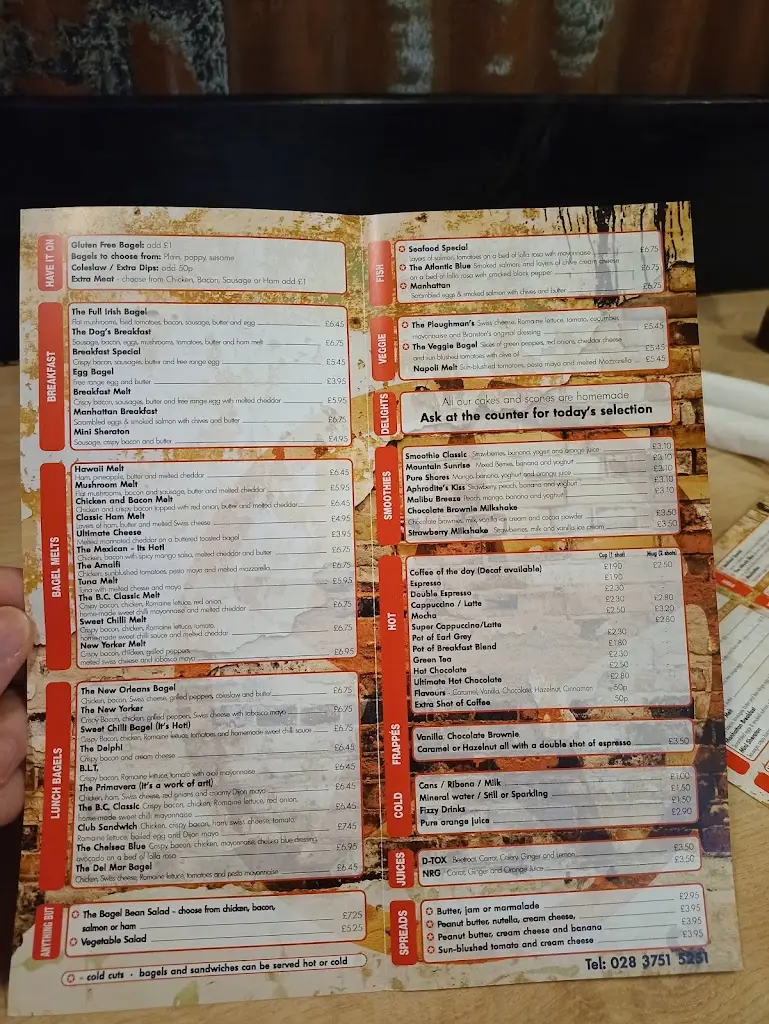 HAVE IT ON
Gluten Free Bagel: add £1
Bagels to choose from: Plain, poppy, sesame
Coleslaw / Extra Dips: add 50p
Extra Meat - choose from Chicken, Bacon, Sausage or Ham add £1
BREAKFAST
The Full Irish Bagel
Flat mushrooms, fried tomatoes, bacon, sausage, butter and egg £6.45
The Dog's Breakfast
Sausage, bacon, eggs, mushrooms, tomatoes, butter and ham melt £6.75
Breakfast Special
Crispy bacon, sausages, butter and free range egg £5.45
Egg Bagel
Free range egg and butter £3.95
Breakfast Melt
Crispy bacon, sausages, butter and free range egg with melted cheddar £5.95
Manhattan Breakfast
Scrambled eggs & smoked salmon with chives and butter £6.75
Mini Sheraton
Sausage, crispy bacon and butter £4.95
BAGEL MELTS
Hawaii Melt
Ham, pineapple, butter and melted cheddar £6.45
Mushroom Melt
Flat mushrooms, bacon and sausage, butter and melted cheddar £5.95
Chicken and Bacon Melt
Chicken and crispy bacon topped with red onion, butter and melted cheddar £6.45
Classic Ham Melt
Layers of ham, butter and melted Swiss cheese £4.95
Ultimate Cheese
Melted marinated cheddar on a buttered toasted bagel £3.95
The Mexican - Its Hot!
Chicken, bacon with spicy mango salsa, melted cheddar and butter £6.75
The Amalfi
Chicken, sunblushed tomatoes, pesto mayo and melted mozzarella £6.75
Tuna Melt
Tuna with melted cheese and mayo £5.95
The B.C. Classic Melt
Crispy bacon, chicken, Romaine lettuce, red onion,
home-made sweet chilli mayonnaise and melted cheddar £6.75
Sweet Chilli Melt
Crispy bacon, chicken, Romaine lettuce, tomato,
home-made sweet chilli sauce and melted cheddar £6.75
New Yorker Melt
Crispy bacon, chicken, grilled peppers,
melted swiss cheese and tabasco mayo £6.95
LUNCH BAGELS
The New Orleans Bagel
Chicken, bacon, Swiss cheese, grilled peppers, coleslaw and butter £6.75
The New Yorker
Crispy Bacon, chicken, grilled peppers, Swiss cheese with tabasco mayo £6.75
Sweet Chilli Bagel (It's Hot!)
Crispy Bacon, chicken, Romaine lettuce, tomatoes and homemade sweet chilli sauce £6.75
The Delphi
Crispy bacon and cream cheese £6.45
B.L.T.
Crispy bacon, Romaine lettuce, tomato with aoli mayonnaise £6.45
The Primavera (it's a work of art!)
Chicken, ham, Swiss cheese, red onions and creamy Dijon mayo £6.45
The B.C. Classic Crispy bacon, chicken, Romaine lettuce, red onion,
home-made sweet chilli mayonnaise £6.45
Club Sandwich Chicken, crispy bacon, ham, swiss cheese, tomato,
Romaine lettuce, boiled egg and Dijon mayo £7.45
The Chelsea Blue Crispy bacon, chicken, mayonnaise, chelsea blue dressing,
avocado on a bed of lolla rosa £6.95
The Del Mar Bagel
Chicken, Swiss cheese, Romaine lettuce, tomatoes and pesto mayonnaise £6.45
ANYTHING BUT
The Bagel Bean Salad - choose from chicken, bacon,
salmon or ham £7.25
Vegetable Salad £5.25
- cold cuts - bagels and sandwiches can be served hot or cold
FISH
Seafood Special
Layers of salmon, tomatoes on a bed of lolla rosa with mayonnaise £6.75
The Atlantic Blue Smoked salmon, and layers of chive cream cheese
on a bed of lolla rosa with cracked black pepper £6.75
Manhattan
Scrambled eggs & smoked salmon with chives and butter £6.75
VEGGIE
The Ploughman's Swiss cheese, Romaine lettuce, tomato, cucumber,
mayonnaise and Branston's original dressing £5.45
The Veggie Bagel Slices of green peppers, red onions, cheddar cheese
and sun blushed tomatoes with olive oil £5.45
Napoli Melt Sun-blushed tomatoes, pesto mayo and melted Mozzarella £5.45
DELIGHTS
All our cakes and scones are homemade
Ask at the counter for today's selection
SMOOTHIES
Smoothie Classic Strawberries, banana, yogurt and orange juice £3.10
Mountain Sunrise Mixed Berries, banana and yoghurt £3.10
Pure Shores Mango, banana, yoghurt and orange juice £3.10
Aphrodite's Kiss Strawberry, peach, banana and yoghurt £3.10
Malibu Breeze Peach, mango, banana and yoghurt £3.10
Chocolate Brownie Milkshake
Chocolate brownies, milk, vanilla ice cream and cocoa powder £3.50
Strawberry Milkshake Strawberries, milk and vanilla ice cream £3.50
HOT
Cup (1 shot) Mug (2 shots)
Coffee of the day (Decaf available) £1.90 £2.50
Espresso £1.90
Double Espresso £2.30
Cappuccino / Latte £2.30 £2.80
Mocha £2.50 £3.20
Super Cappuccino/Latte £2.80
Pot of Earl Grey £2.30
Pot of Breakfast Blend £1.80
Green Tea £2.30
Hot Chocolate £2.50
Ultimate Hot Chocolate £2.80
Flavours - Caramel, Vanilla, Chocolate, Hazelnut, Cinnamon 50p
Extra Shot of Coffee 50p
FRAPPÉS
Vanilla, Chocolate Brownie,
Caramel or Hazelnut all with a double shot of espresso £3.50
COLD
Cans / Ribena / Milk £1.00
Mineral water / Still or Sparkling £1.50
Fizzy Drinks £1.50
Pure orange juice £2.90
JUICES
D-TOX Beetroot, Carrot, Celery, Ginger and Lemon £3.50
NRG Carrot, Ginger and Orange Juice £3.50
SPREADS
Butter, jam or marmalade £2.95
Peanut butter, nutella, cream cheese, £3.95
Peanut butter, cream cheese and banana £3.95
Sun-blushed tomato and cream cheese £3.95
Tel: 028 3751 5251